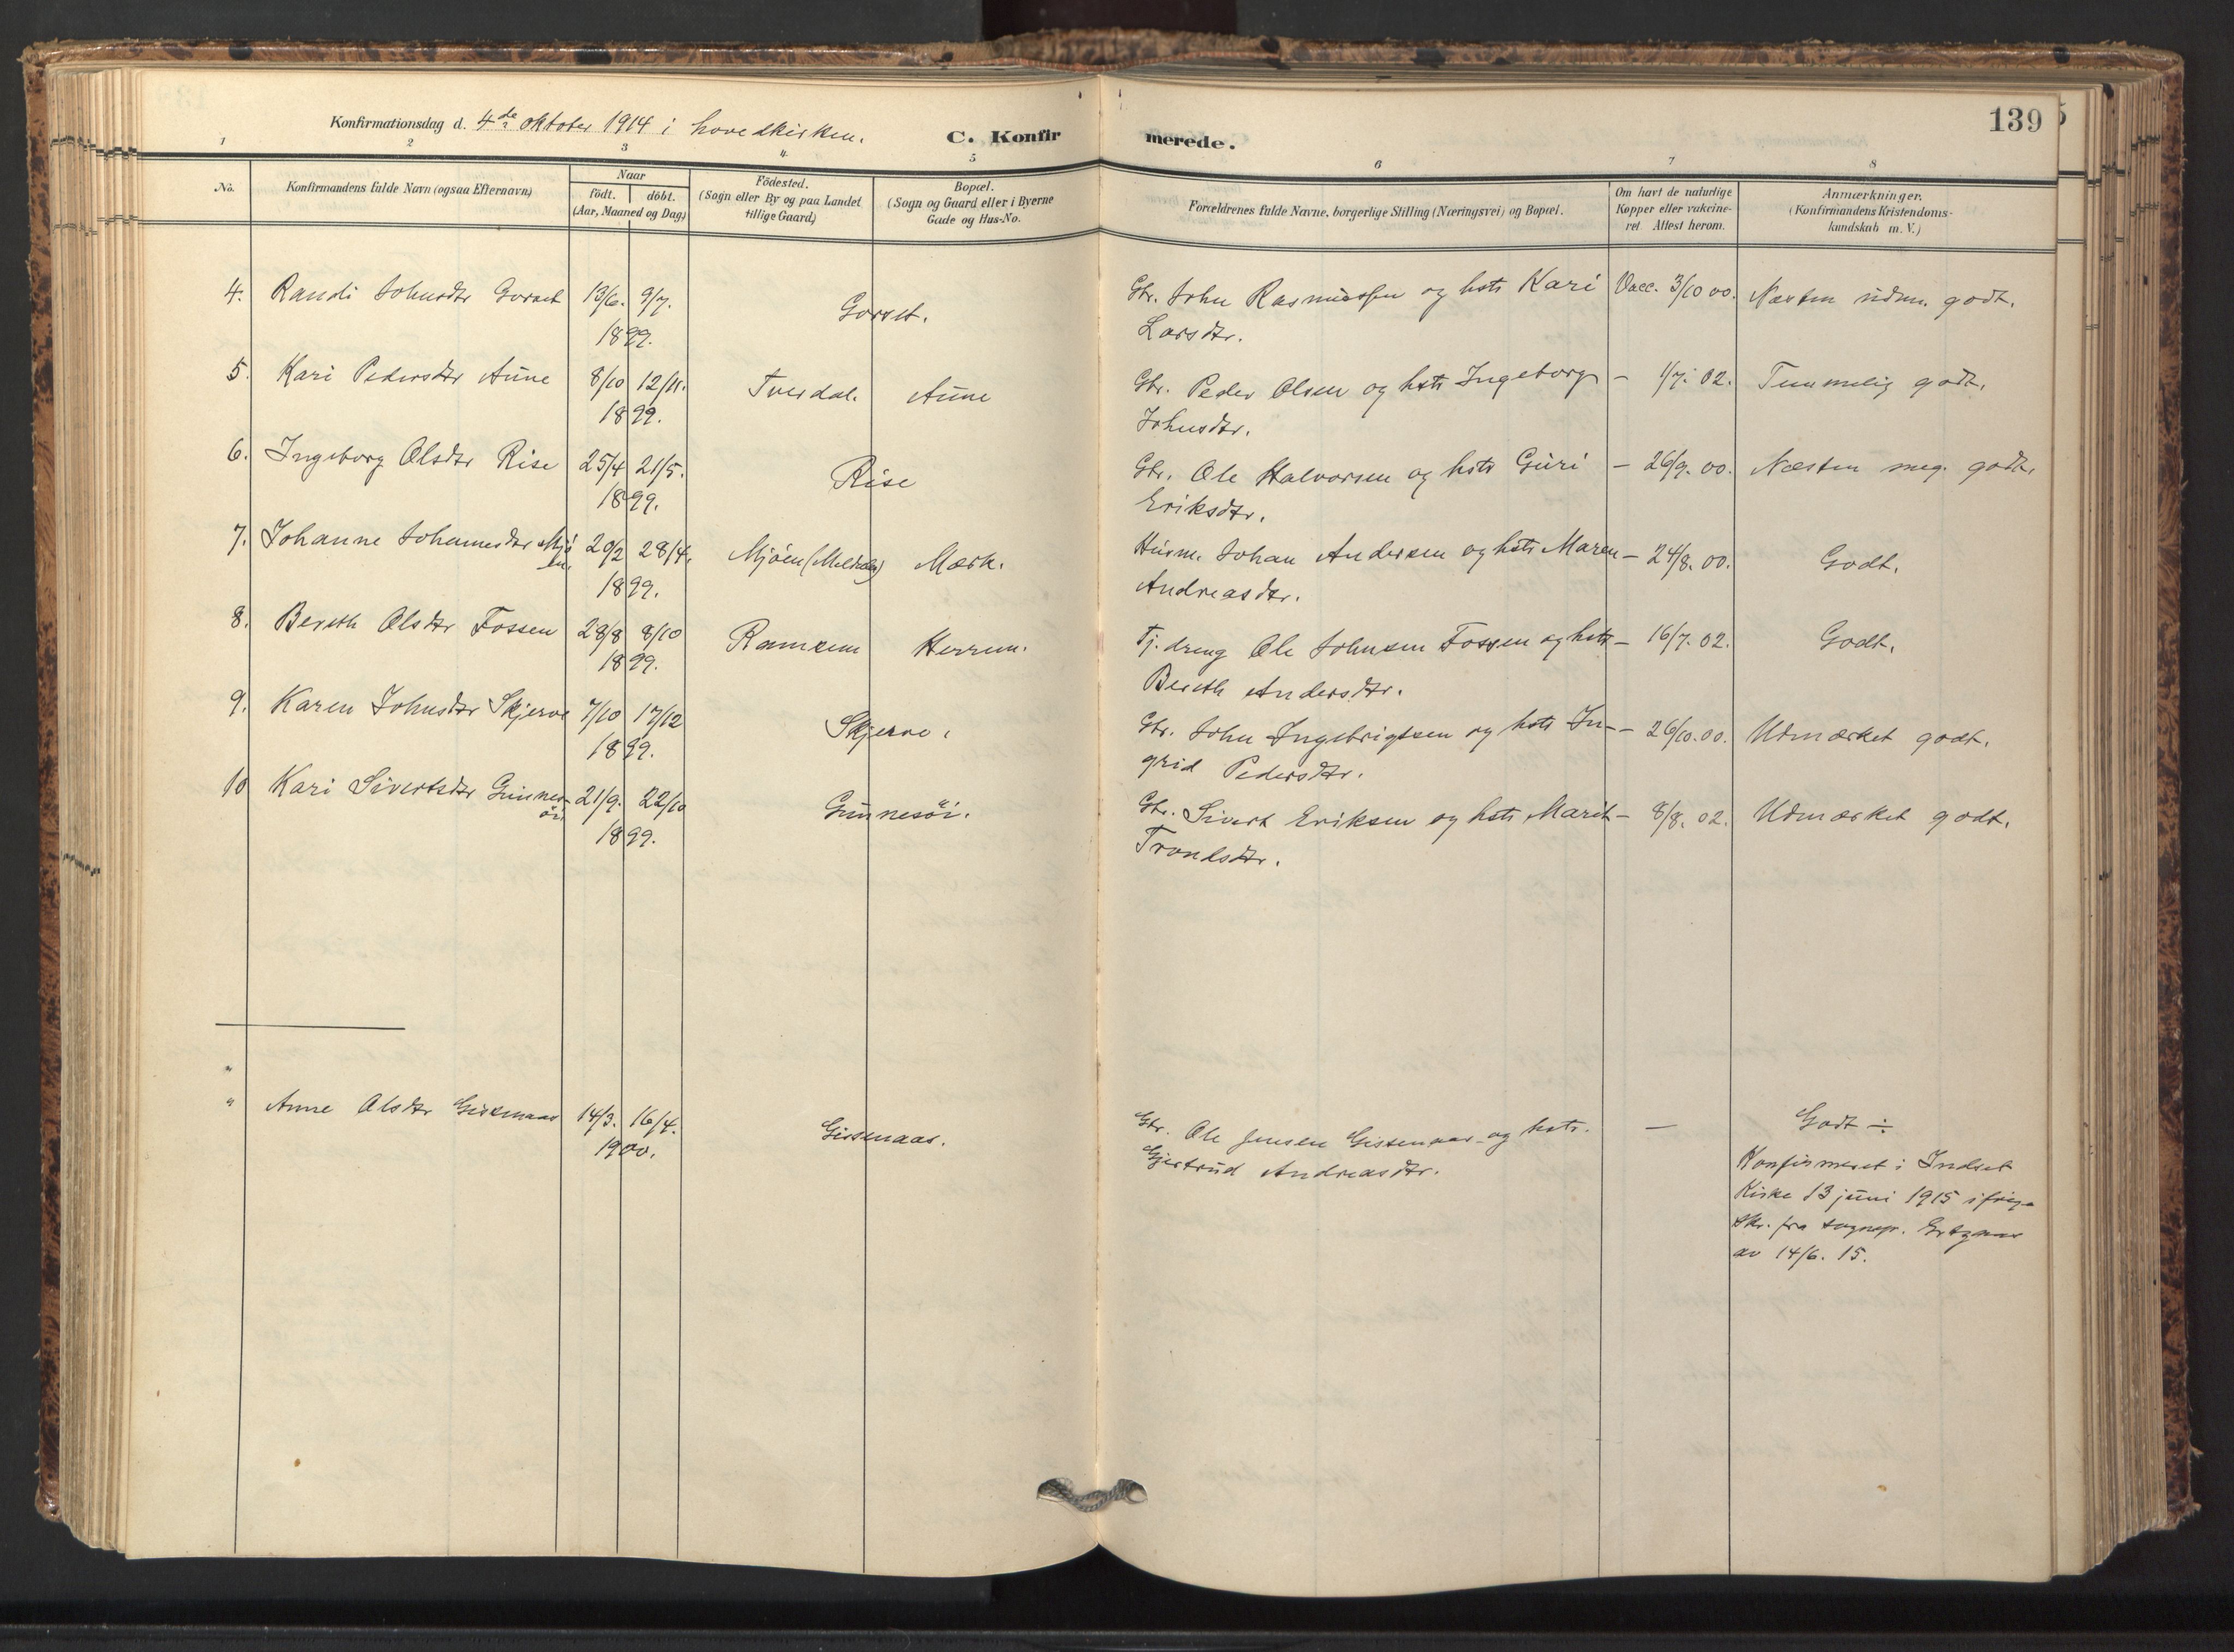 139
Konfirmationsdag d. 4de oktober 1914 i hovedkirken.
C. Konfirmerede.
1 2 3 4 5 6 7 8
No.
Konfirmandens fulde Navn (ogsaa Efternavn)
Naar
födt. döbt.
(Aar, Maaned og Dag)
Födested.
(Sogn eller By og paa Landet
tillige Gaard)
Bopæl.
(Sogn og Gaard eller i Byerne
Gade og Hus-No.
Forældrenes fulde Navne, borgerlige Stilling (Næringsvei) og Bopæl.
Om havt de naturlige
Kopper eller vakcine-
ret. Attest herom.
Anmærkninger.
(Konfirmandens Kristendoms-
kundskab m. V.)
4. Randi Johnsdtr Gorset 13/6. 9/7. Gorset. Gbr. John Rasmussen og hstr Kari Vacc. 3/10 00. Næsten udm. godt.
1899. Larsdtr.
5. Kari Pedersdtr Aune 8/10 12/11. Tverdal. Aune Gbr. Peder Olsen og hstr Ingeborg – 1/7. 02. Temmelig godt.
1899. Johnsdtr.
6. Ingeborg Olsdtr Rise 25/4 21/5. Rise Gbr. Ole Halvorsen og hstr Guri – 26/9. 00. Næsten meg. godt.
1899. Eriksdtr.
7. Johanne Johannesdtr Mjö 20/2 28/4. Mjöen (Meldalen) Mærk. Husm. Johan Andersen og hstr Maren – 24/8. 00. Godt.
en. 1899. Andreasdtr.
8. Bereth Olsdtr Fossen 28/8 8/10 Ramsem Herrem. Tj. dreng Ole Johnsen Fossen og hstr – 16/7. 02. Godt.
1899. Bereth Andersdtr.
9. Karen Johnsdtr Skjerve 7/10 17/12 Skjerve. Gbr. John Ingebrigtsen og hstr In- – 26/10. 00. Udmærket godt.
1899. grid Pedersdtr.
10 Kari Sivertsdtr Gunnes- 21/9. 22/10 Gunnesöi. Gbr. Sivert Eriksen og hstr Marit – 8/8. 02. Udmærket godt.
öi 1899. Trondsdtr.
"
" Anne Olsdtr Gissenaas 14/3. 16/4. Gissenaas. Gbr. Ole Jensen Gissenaas og hstr. — Godt ÷
1900. Gjertrud Andreasdtr.
Konfirmeret i Indset
Kirke 13 juni 1915 ifølge
skr. fra sognepr.
av 14/6. 15.